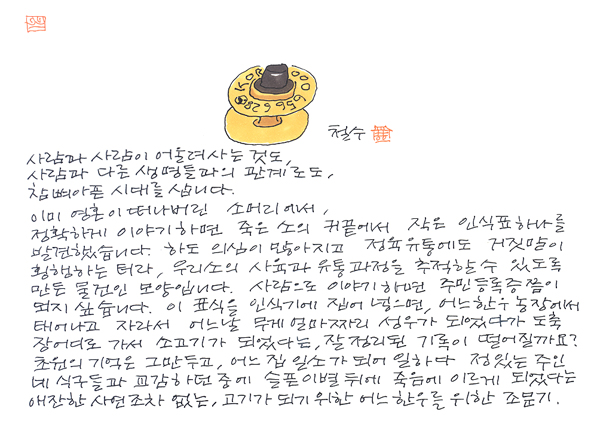 KOR 000
082966569
철수
사람과 사람이 어울려사는 것도,
사람과 다른 생명들과의 관계로도,
참 뼈아픈 시대를 삽니다.
이미 영혼이 떠나버린 소머리에서,
정확하게 이야기하면 죽은 소의 귀끝에서 작은 인식표하나를
발견했습니다. 하도 의심이 많아지고 정육유통에도 거짓말이
횡행하는 터라, 우리소의 사육과 유통과정을 추적할 수 있도록
만든 물건인 모양입니다. 사람으로 이야기하면 주민등록증쯤이
되지 싶습니다. 이 표식을 인식기에 집어 넣으면, 어느한우 농장에서
태어나고 자라서 어느날 무게 얼마짜리 성우가 되었다가 도축
장어디로 가서 소고기가 되었다는, 잘 정리된 기록이 떨어질까요?
초원의 기억은 그만두고, 어느 집 일소가 되어 일하다 정있는 주인
네 식구들과 교감하던 중에 슬픈이별 뒤에 죽음에 이르게 되었다는
애잔한 사연조차 없는, 고기가 되기 위한 어느한우를 위한 조문기.